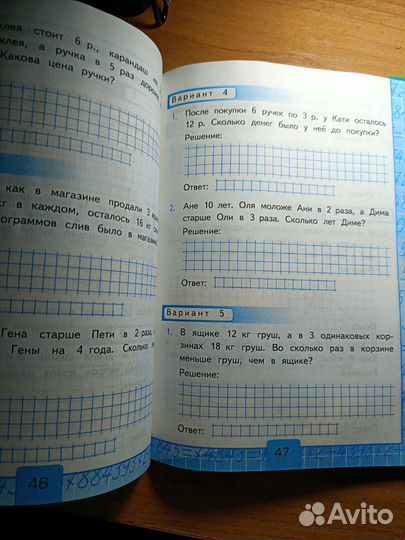 клея стоит 6 р., карандаш на
клея, а ручка в 5 раз дороже
Какова цена ручки?
как в магазине продали 3
кг в каждом, осталось 16 кг
ограммов слив было в магазине
Гена старше Пети в 2 раза,
Гены на 4 года. Сколько
46
Вариант 4
1. После покупки 6 ручек по 3 р. у Кати осталось
12 р. Сколько денег было у неё до покупки?
Решение:
Ответ:
2. Ане 10 лет. Оля моложе Ани в 2 раза, а Дима
старше Оли в 3 раза. Сколько лет Диме?
Решение:
Ответ:
Вариант 5
1. В ящике 12 кг груш, а в 3 одинаковых кор-
зинах 18 кг груш. Во сколько раз в корзине
меньше груш, чем в ящике?
Решение:
Ответ:
47
Avito